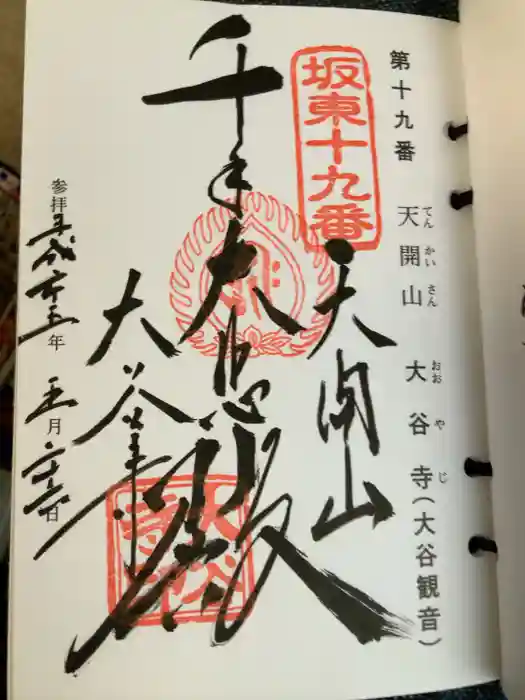 第十九番 天開山 大谷寺(大谷観音)
てんかいさん おおやじ
坂東十九番
天開山
千手大悲殿
大谷寺
参拝 平成二十五年 五月二十六日